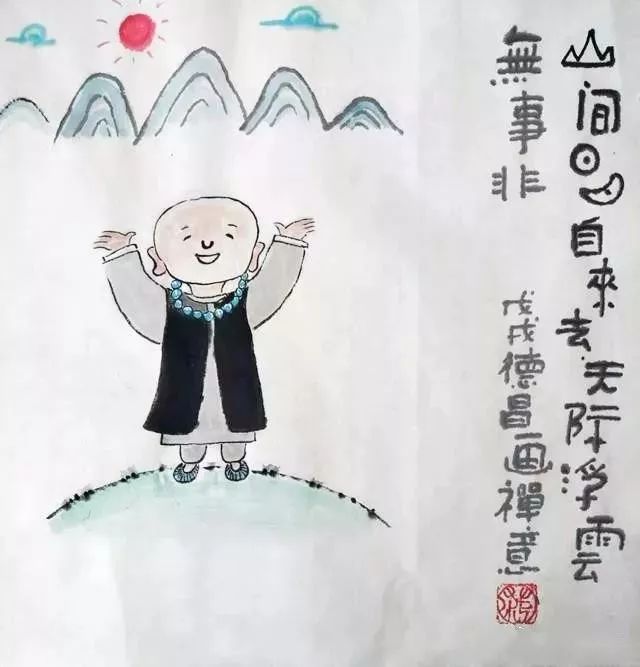 山间日月自來去天际浮雲
無事非
戊戌德昌画禪意